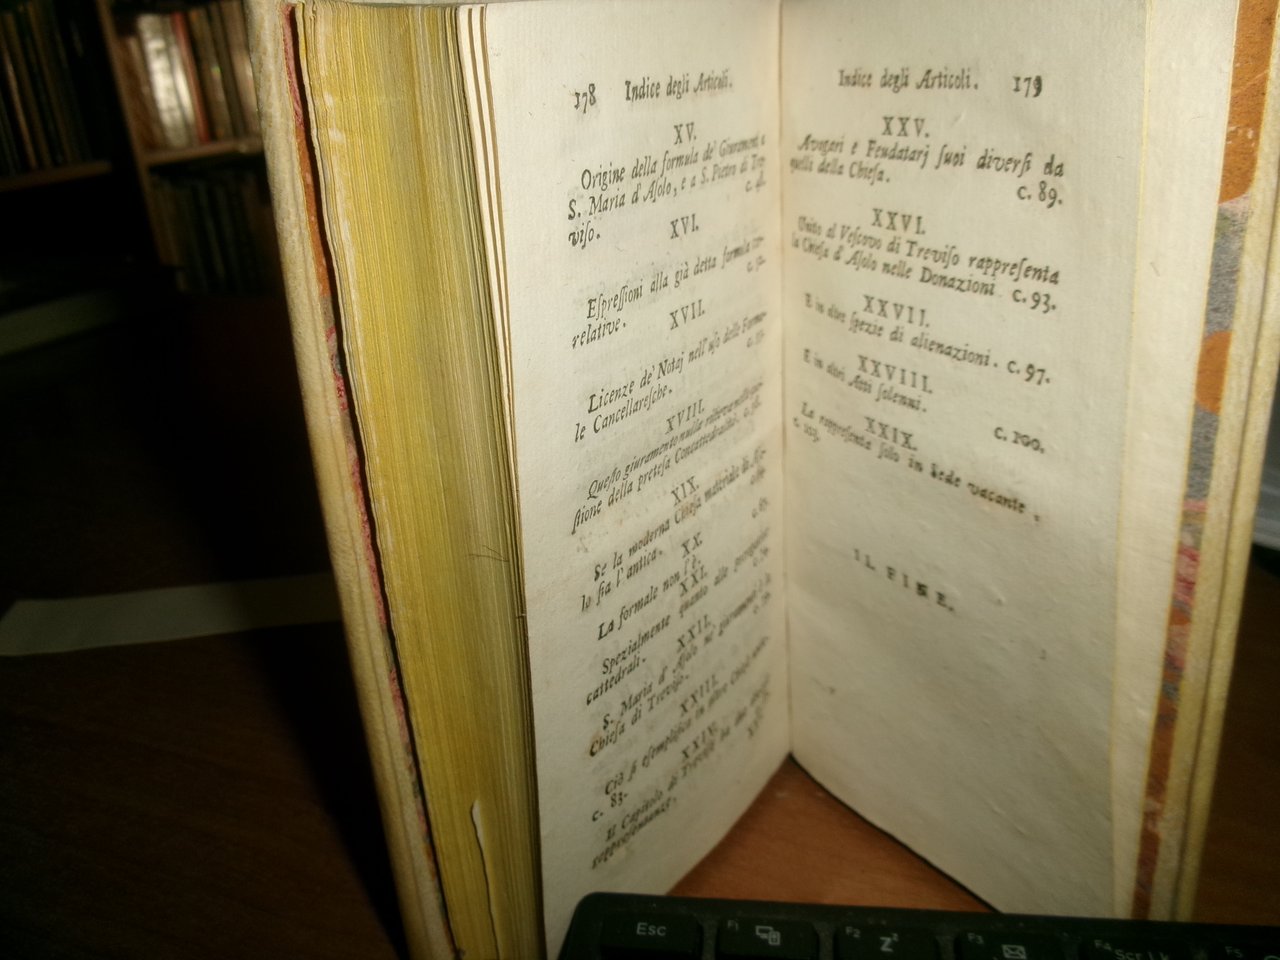 178 Indice degli Articoli.
XV.
Origine della formula de' Giuramenti a
S. Maria d'Aſolo, e a S. Pietro di Tre-
viſo. c. 48.
XVI.
Eſpreſſioni alla già detta formula co-
relative.
XVII.
Licenze de' Notaj nell' uſo delle Formo-
le Cancellareſche.
XVIII.
Queſto giuramento nulla rileva nella que-
ſtione della preteſa Concattedralità. c. 58.
XIX.
Se la moderna Chieſa materiale di Aſo-
lo ſia l'antica.
XX.
La formale non l'è.
XXI.
Spezialmente quanto alle prerogative
cattedrali.
XXII.
S. Maria d' Aſolo ne' giuramenti è la
Chieſa di Treviſo.
XXIII.
Ciò ſi eſemplifica in altre Chieſe
c. 83.
XXIV.
Il Capitolo di Treviſo ha due
rappreſentanze.
Indice degli Articoli. 179
XXV.
Avogari e Feudatarj ſuoi diverſi da
quelli della Chieſa. c. 89.
XXVI.
Unito al Veſcovo di Treviſo rappreſenta
la Chieſa d' Aſolo nelle Donazioni c. 93.
XXVII.
E in altre ſpezie di alienazioni. c. 97.
XXVIII.
E in altri Atti ſolenni. c. 100.
XXIX.
La rappreſenta ſolo in Sede vacante.
c. 103.
IL FINE.
Esc F1 F2 Z F3 F4 Scr Lk F5